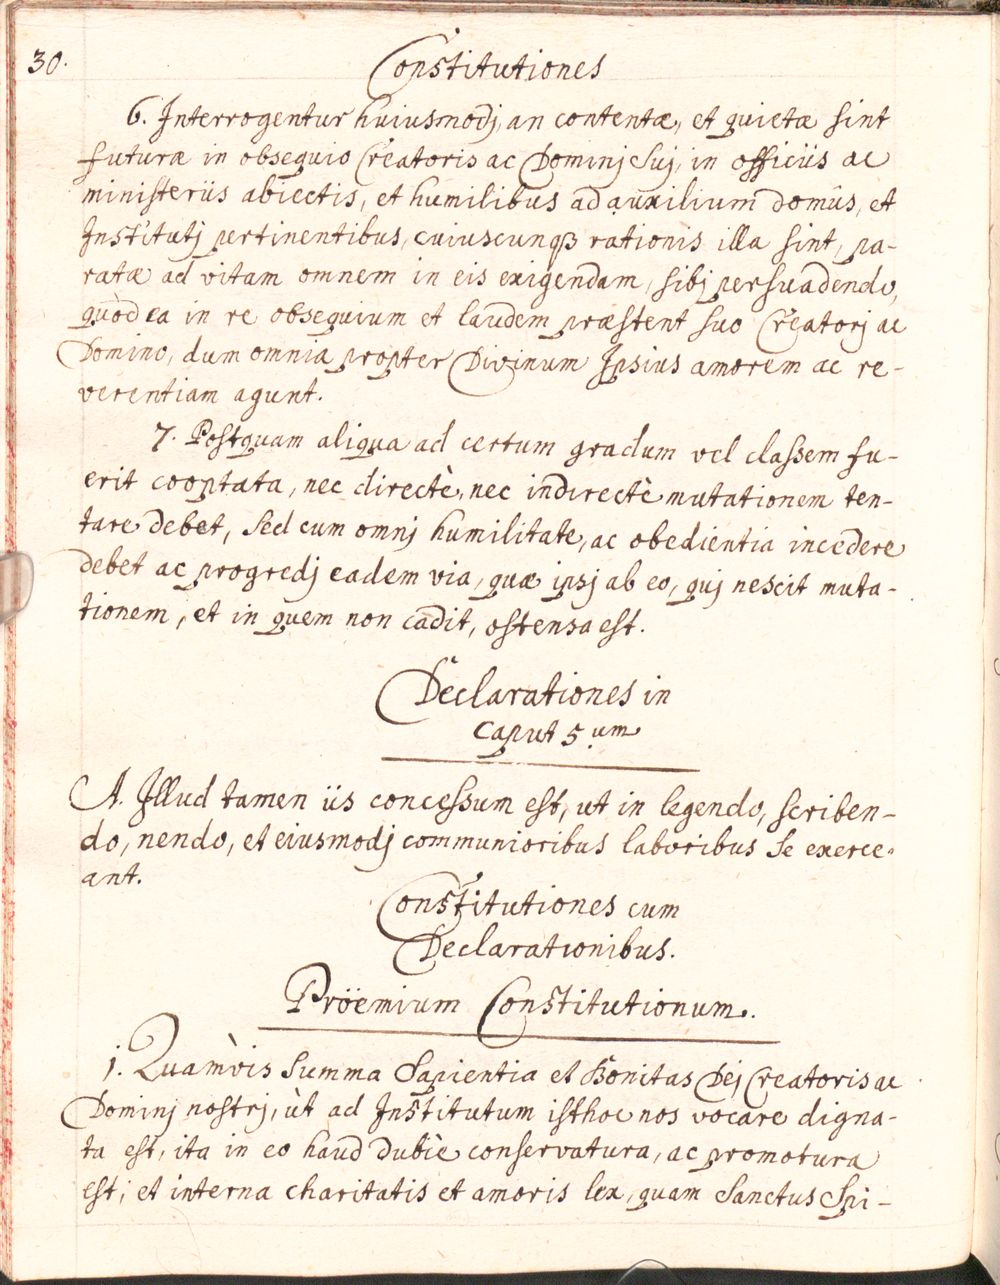 30.
Constitutiones
6. Interrogentur huiusmodj, an contentæ, et quietæ sint
futuræ in obsequio Creatoris ac Dominj Suj, in officiis ac
ministeriis abiectis, et humilibus ad auxilium domûs, et
Institutj pertinentibus, cuiuscunqß rationis illa sint, pa-
ratæ ad vitam omnem in eis exigendam, sibj persuadendo,
quòd ea in re obsequium et laudem præstent suo Creatorj ac
Domino, dum omnia propter Divinum Ipsius amorem ac re-
verentiam agunt.
7. Postquam aliqua ad certum gradum vel classem fu-
erit cooptata, nec directè, nec indirectè mutationem ten-
tare debet, sed cum omnj humilitate, ac obedientia incedere
debet ac progredj eadem via, quæ ipsj ab eo, quj nescit muta-
tionem, et in quem non cadit, ostensa est.
Declarationes in
Caput 5.um
A. Illud tamen iis concessum est, ut in legendo, scriben-
do, nendo, et eiusmodj communioribus laboribus se exerce-
ant.
Constitutiones cum
Declarationibus.
Pröemium Constitutionum.
j. Quamvìs Summa Sapientia et Bonitas Dej Creatoris ac
Dominj nostrj, ùt ad Institutum isthoc nos vocare digna-
ta est, ita in eo haud dubiè conservatura, ac promotura
est; et interna charitatis et amoris lex, quam Sanctus Spi-